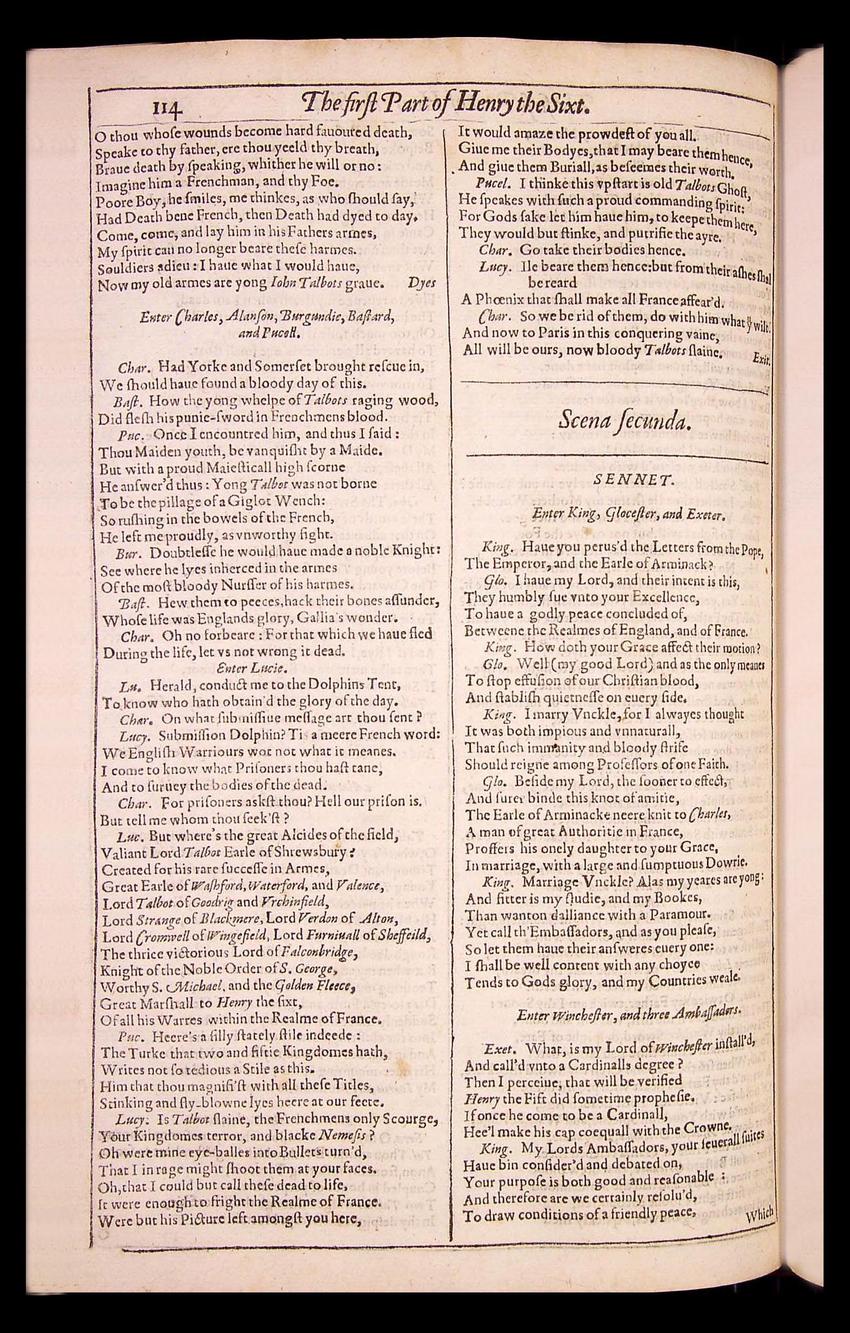 114 The first Part of Henry the Sixt.
O thou whose wounds become hard fauoured death,
Speake to thy father, ere thou yeeld thy breath,
Braue death by speaking, whither he will or no:
Imagine him a Frenchman, and thy Foe.
Poore Boy, he smiles, me thinkes, as who should say,
Had Death bene French, then Death had dyed to day.
Come, come, and lay him in his Fathers armes,
My spirit can no longer beare these harmes.
Souldiers adieu: I haue what I would haue,
Now my old armes are yong Iohn Talbots graue. Dyes
Enter Charles, Alanson, Burgundie, Bastard,
and Pucell.
Char. Had Yorke and Somerset brought rescue in,
We should haue found a bloody day of this.
Bast. How the yong whelpe of Talbots raging wood,
Did flesh his punie-sword in Frenchmens blood.
Puc. Once I encountred him, and thus I said:
Thou Maiden youth, be vanquisht by a Maide.
But with a proud Maiesticall high scorne
He answer'd thus: Yong Talbot was not borne
To be the pillage of a Giglot Wench:
So rushing in the bowels of the French,
He left me proudly, as vnworthy fight.
Bur. Doubtlesse he would haue made a noble Knight:
See where he lyes inherced in the armes
Of the most bloody Nursser of his harmes.
Bast. Hew them to peeces, hack their bones assunder,
Whose life was Englands glory, Gallia's wonder.
Char. Oh no forbeare: For that which we haue fled
During the life, let vs not wrong it dead.
Enter Lucie.
Lu. Herald, conduct me to the Dolphins Tent,
To know who hath obtain'd the glory of the day.
Char. On what submissiue message art thou sent?
Lucy. Submission Dolphin? Tis a meere French word:
We English Warriours wot not what it meanes.
I come to know what Prisoners thou hast tane,
And to suruey the bodies of the dead.
Char. For prisoners askst thou? Hell our prison is.
But tell me whom thou seek'st?
Luc. But where's the great Alcides of the field,
Valiant Lord Talbot Earle of Shrewsbury?
Created for his rare successe in Armes,
Great Earle of Washford, Waterford, and Valence,
Lord Talbot of Goodrig and Vrchinfield,
Lord Strange of Blackmere, Lord Verdon of Alton,
Lord Cromwell of Wingefield, Lord Furniuall of Sheffeild,
The thrice victorious Lord of Falconbridge,
Knight of the Noble Order of S. George,
Worthy S. Michael, and the Golden Fleece,
Great Marshall to Henry the sixt,
Of all his Warres within the Realme of France.
Puc. Heere's a silly stately stile indeede:
The Turke that two and fiftie Kingdomes hath,
Writes not so tedious a Stile as this.
Him that thou magnifi'st with all these Titles,
Stinking and fly-blowne lyes heere at our feete.
Lucy. Is Talbot slaine, the Frenchmens only Scourge,
Your Kingdomes terror, and blacke Nemesis?
Oh were mine eye-balles into Bullets turn'd,
That I in rage might shoot them at your faces.
Oh, that I could but call these dead to life,
It were enough to fright the Realme of France.
Were but his Picture left amongst you here,
It would amaze the prowdest of you all.
Giue me their Bodyes, that I may beare them hence,
And giue them Buriall, as beseemes their worth.
Pucel. I thinke this vpstart is old Talbots Ghost,
He speakes with such a proud commanding spirit:
For Gods sake let him haue him, to keepe them here,
They would but stinke, and putrifie the ayre.
Char. Go take their bodies hence.
Lucy. Ile beare them hence: but from their ashes shal
be reard
A Phœnix that shall make all France affear'd.
Char. So we be rid of them, do with him what ẏ wilt.
And now to Paris in this conquering vaine,
All will be ours, now bloody Talbots slaine. Exit.
Scena secunda.
SENNET.
Enter King, Glocester, and Exeter.
King. Haue you perus'd the Letters from the Pope,
The Emperor, and the Earle of Arminack?
Glo. I haue my Lord, and their intent is this,
They humbly sue vnto your Excellence,
To haue a godly peace concluded of,
Betweene the Realmes of England, and of France.
King. How doth your Grace affect their motion?
Glo. Well (my good Lord) and as the only meanes
To stop effusion of our Christian blood,
And stablish quietnesse on euery side.
King. I marry Vnckle, for I alwayes thought
It was both impious and vnnaturall,
That such immanity and bloody strife
Should reigne among Professors of one Faith.
Glo. Beside my Lord, the sooner to effect,
And surer binde this knot of amitie,
The Earle of Arminacke neere knit to Charles,
A man of great Authoritie in France,
Proffers his onely daughter to your Grace,
In marriage, with a large and sumptuous Dowrie.
King. Marriage Vnckle? Alas my yeares are yong:
And fitter is my studie, and my Bookes,
Than wanton dalliance with a Paramour.
Yet call th'Embassadors, and as you please,
So let them haue their answeres euery one:
I shall be well content with any choyce
Tends to Gods glory, and my Countries weale.
Enter Winchester, and three Ambassadors.
Exet. What, is my Lord of Winchester install'd,
And call'd vnto a Cardinalls degree?
Then I perceiue, that will be verified
Henry the Fift did sometime prophesie.
If once he come to be a Cardinall,
Hee'l make his cap coequall with the Crowne.
King. My Lords Ambassadors, your seuerall suites
Haue bin consider'd and debated on,
Your purpose is both good and reasonable:
And therefore are we certainly resolu'd,
To draw conditions of a friendly peace,
Which